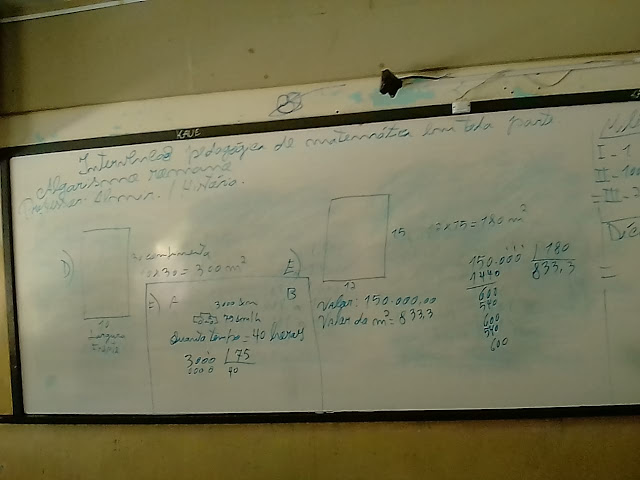 KAUE
pedagógica de matemática em toda parte
Algarismo romano
D)
30 comprimento
10x30 = 300 m²
10
Largura
E)
15
12
12x15 = 180 m²
Valor: 150.000,00
Valor do m² = 833,3
150.000 180
1440 833,3
600
540
600
540
600
A
B
3000 km
75 km/h
Quanto tempo = 40 horas
3000 75
0000 40
I - 1
II - 100
= III -
=